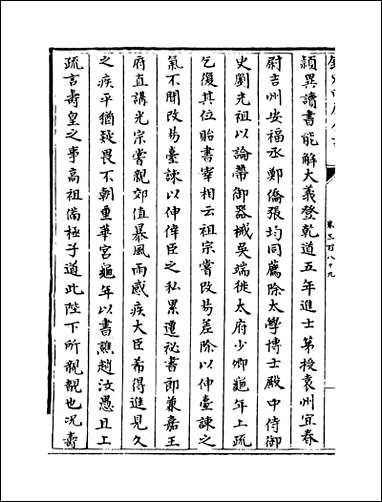 穎異讀書能解大義登乾道五年進士第授袁州宜春
尉吉州安福丞鄭僑張均同薦除太學博士殿中侍御
史劉光祖以論帶御器械吳端徙太府少卿龜年上疏
乞復其位貽書宰相云祖宗嘗改易差除以伸臺諫之
氣不聞改易臺諫以伸倖臣之私累遷祕書郎兼嘉王
府直講光宗嘗親郊值暴風雨感疾大臣希得進見久
之疾平猶疑畏不朝重華宮龜年以書譙趙汝愚且上
疏言壽皇之事高祖備極子道此陛下所親覩也况壽
卷三百八十九